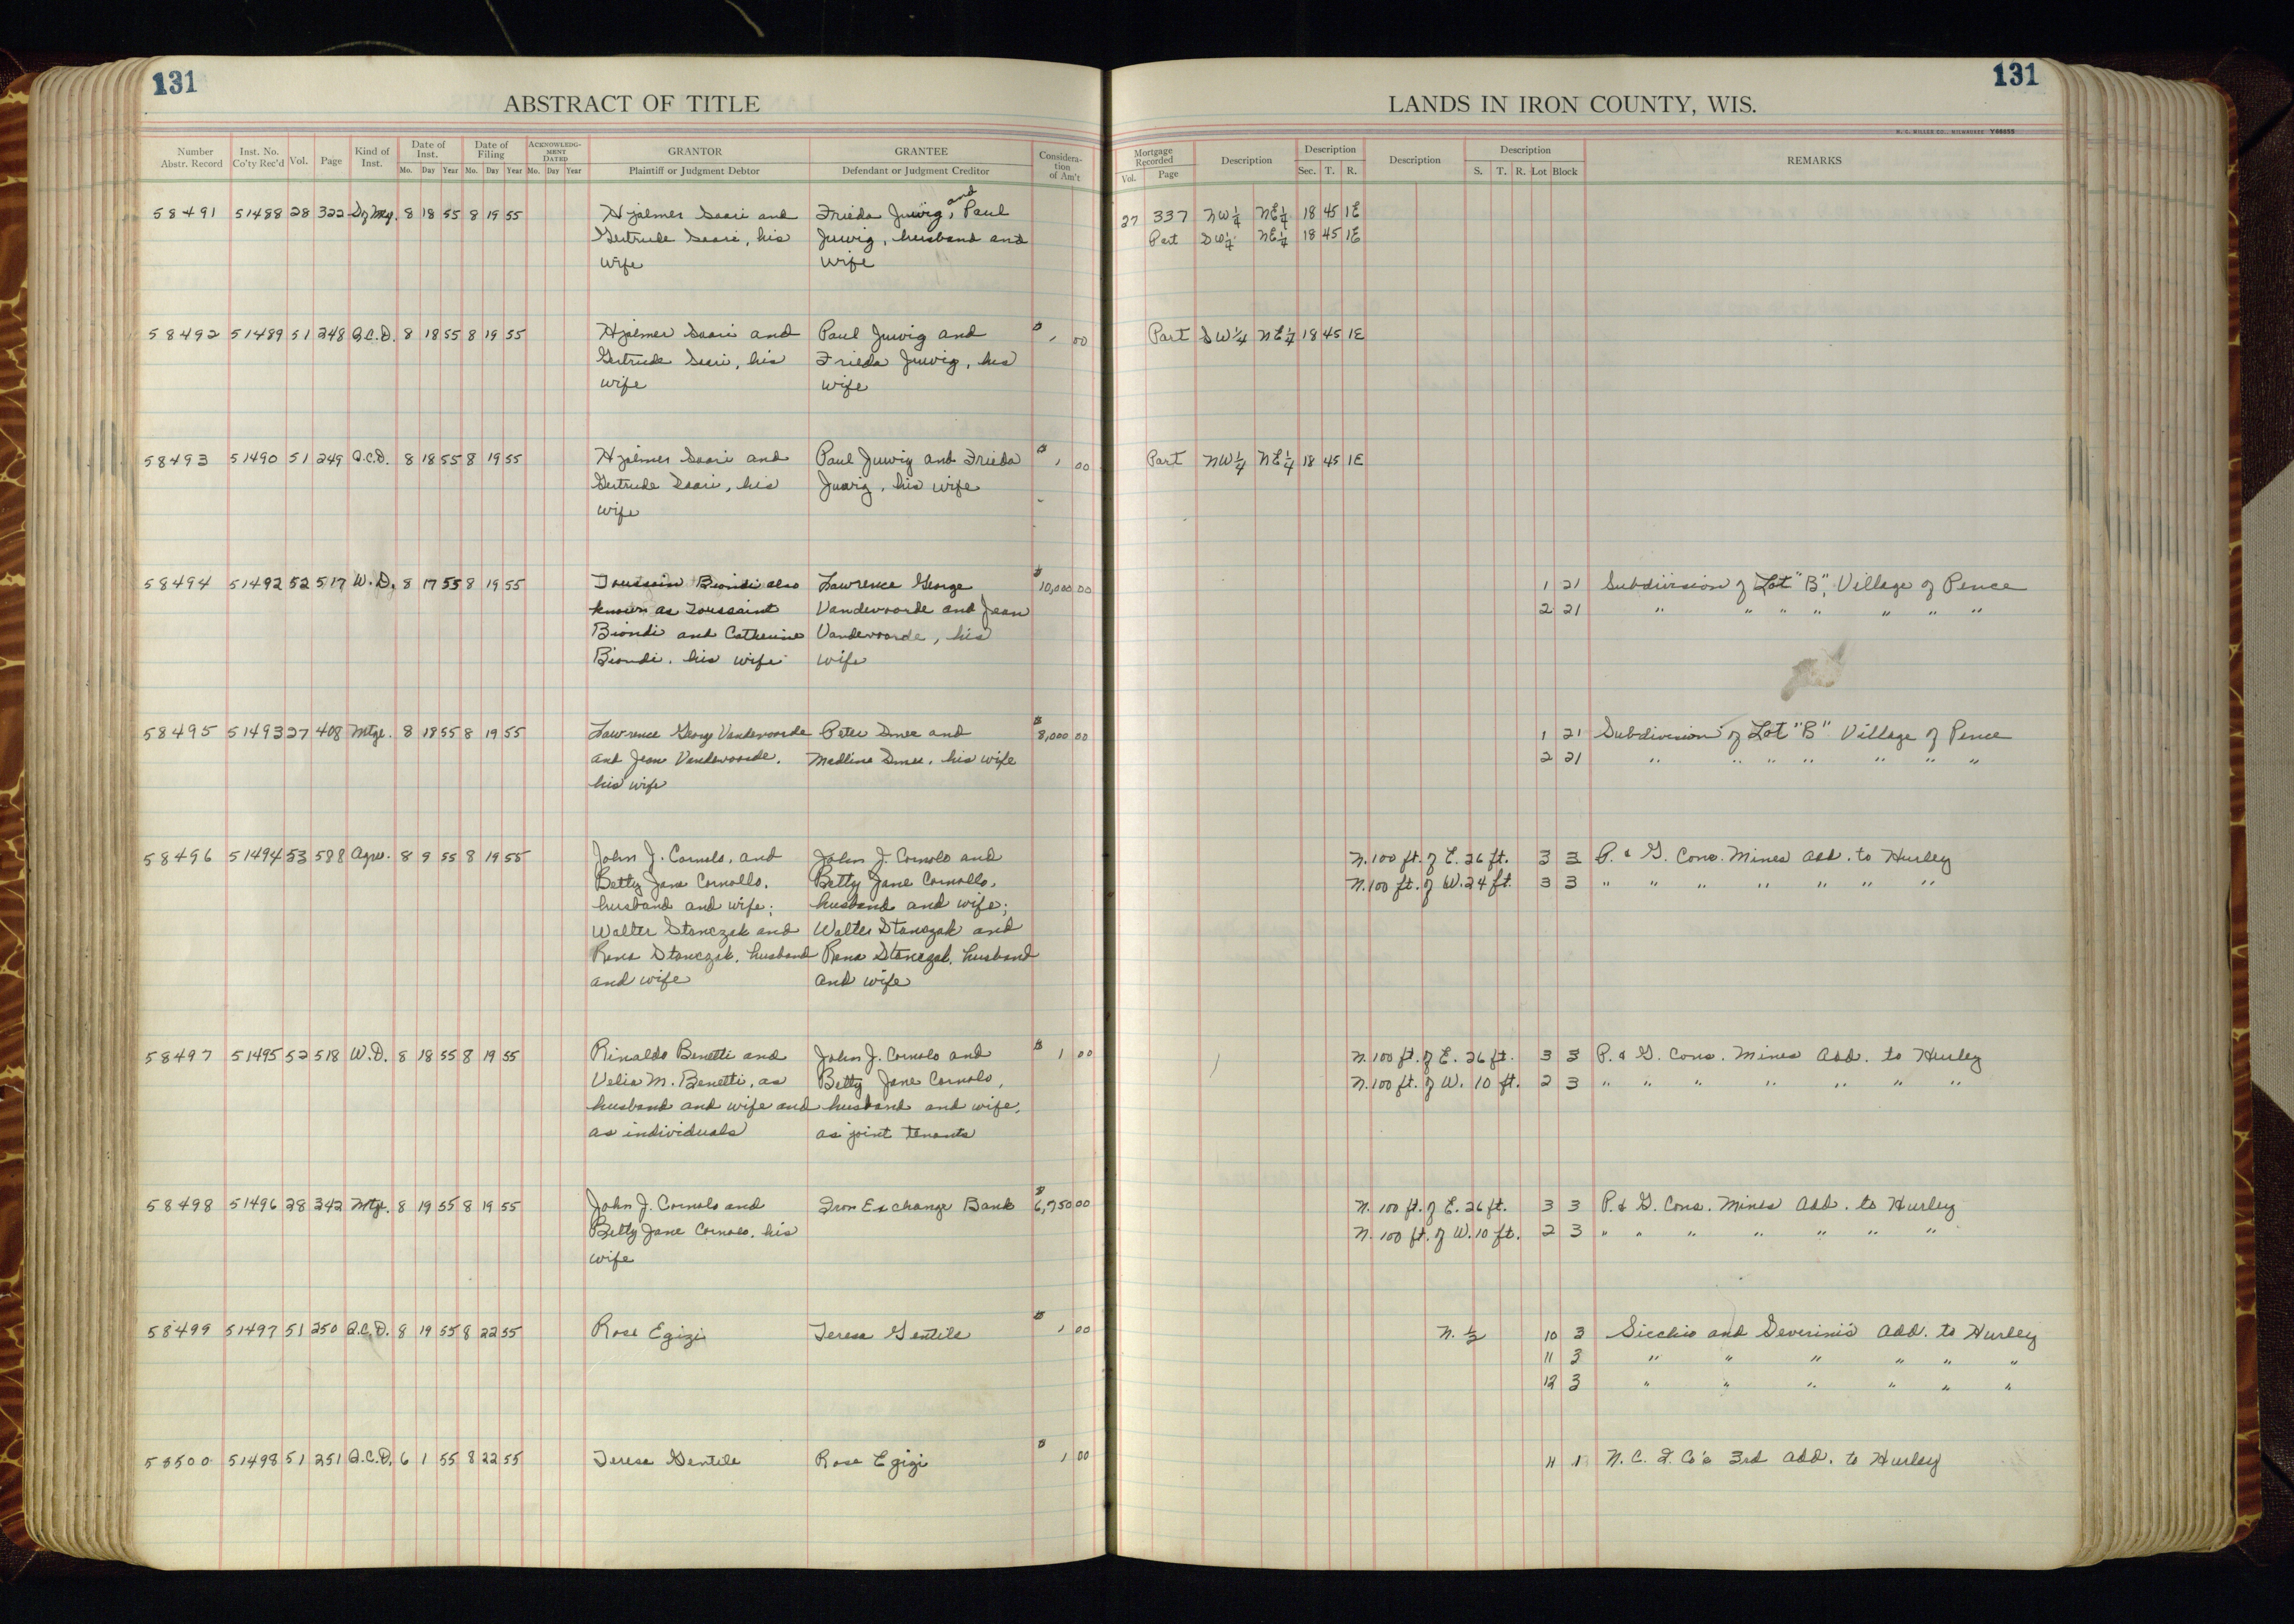 131
131
ABSTRACT OF TITLE
LANDS IN IRON COUNTY, WIS.
H. C. MILLER CO., MILWAUKEE Y66655
Number Abstr. Record Inst. No. Co'ty Rec'd Vol. Page Kind of Inst. Date of Inst. Mo. Day Year Date of Filing Mo. Day Year ACKNOWLEDG-MENT DATED Mo. Day Year GRANTOR Plaintiff or Judgment Debtor GRANTEE Defendant or Judgment Creditor Considera-tion of Am't
Mortgage Recorded Vol. Page Description Description Sec. T. R. Description Description S. T. R. Lot Block REMARKS
58491 51488 28 322 8 18 55 8 19 55 Hjalmer Saari and Frieda Juwig, and Paul 27 337 NW 1/4 NE 1/4 18 45 1E
Gertrude Saari, his Juwig, husband and Part SW 1/4 NE 1/4 18 45 1E
wife wife
58492 51489 51 248 Q.C.D. 8 18 55 8 19 55 Hjalmer Saari and Paul Juwig and $ 1 00 Part SW 1/4 NE 1/4 18 45 1E
Gertrude Saari, his Frieda Juwig, his
wife wife
58493 51490 51 249 Q.C.D. 8 18 55 8 19 55 Hjalmer Saari and Paul Juwig and Frieda $ 1 00 Part NW 1/4 NE 1/4 18 45 1E
Gertrude Saari, his Juwig, his wife
wife
58494 51492 52 517 W.D. 8 17 55 8 19 55 Toussain Biondi also Lawrence George $ 10,000 00 1 21 Subdivision of Lot "B", Village of Pence
known as Toussaint Vandevoorde and Jean 2 21 " " " " " " "
Biondi and Catherine Vandevoorde, his
Biondi, his wife wife
58495 51493 27 408 Mtge. 8 18 55 8 19 55 Lawrence George Vandevoorde Peter and $ 8,000 00 1 21 Subdivision of Lot "B" Village of Pence
and Jean Vandevoorde, Madline his wife 2 21 " " " " " " "
his wife
58496 51494 53 588 Agre. 8 9 55 8 19 55 John J. Cornolo, and John J. Cornolo and N. 100 ft. of E. 26 ft. 3 3 P. & G. Cons. Mines Add. to Hurley
Betty Jane Cornollo, Betty Jane Cornollo, N. 100 ft. of W. 24 ft. 3 3 " " " " " " "
husband and wife; husband and wife;
Walter Stanczak and Walter Stanczak and
Rena Stanczak, husband Rena Stanczak, husband
and wife and wife
58497 51495 52 518 W.D. 8 18 55 8 19 55 Rinaldo Benetti and John J. Cornolo and $ 1 00 N. 100 ft. of E. 26 ft. 3 3 P. & G. Cons. Mines Add. to Hurley
Velia M. Benetti, as Betty Jane Cornolo, N. 100 ft. of W. 10 ft. 2 3 " " " " " " "
husband and wife and husband and wife,
as individuals as joint tenants
58498 51496 28 342 Mtge. 8 19 55 8 19 55 John J. Cornolo and Iron Exchange Bank $ 6,750 00 N. 100 ft. of E. 26 ft. 3 3 P. & G. Cons. Mines Add. to Hurley
Betty Jane Cornolo, his N. 100 ft. of W. 10 ft. 2 3 " " " " " " "
wife
58499 51497 51 250 Q.C.D. 8 19 55 8 22 55 Rose Egizi Teresa Gentile $ 1 00 N. 1/2 10 3 Sicchio and Severini's Add. to Hurley
11 3 " " " " " "
12 3 " " " " " "
58500 51498 51 251 Q.C.D. 6 1 55 8 22 55 Teresa Gentile Rose Egizi $ 1 00 11 1 N. C. I. Co's 3rd Add. to Hurley